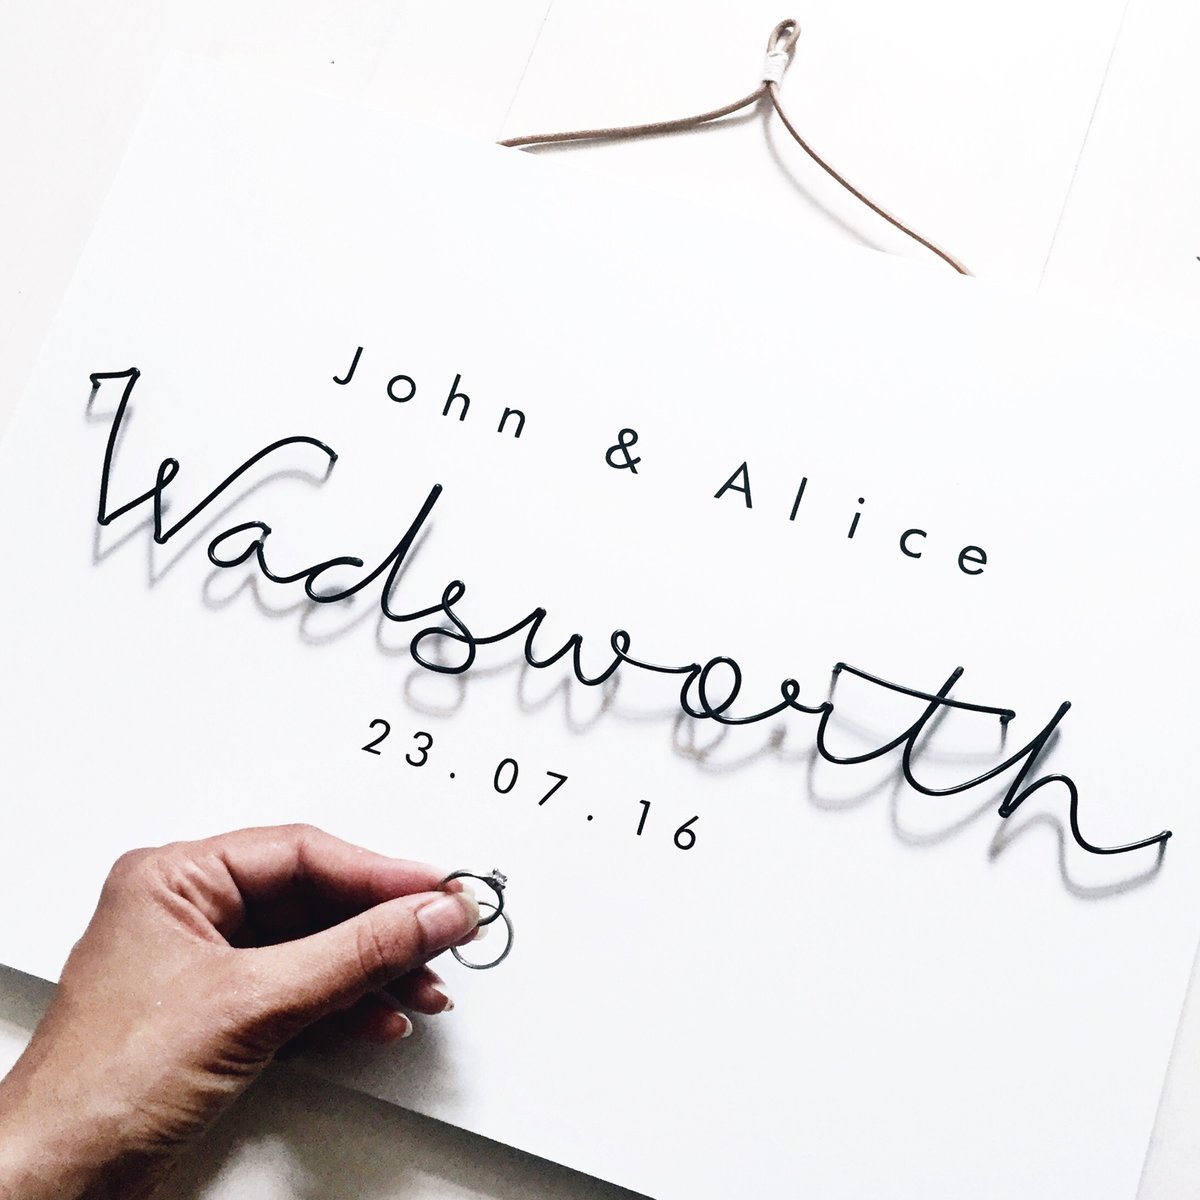 John & Alice
Wadsworth
23.07.16